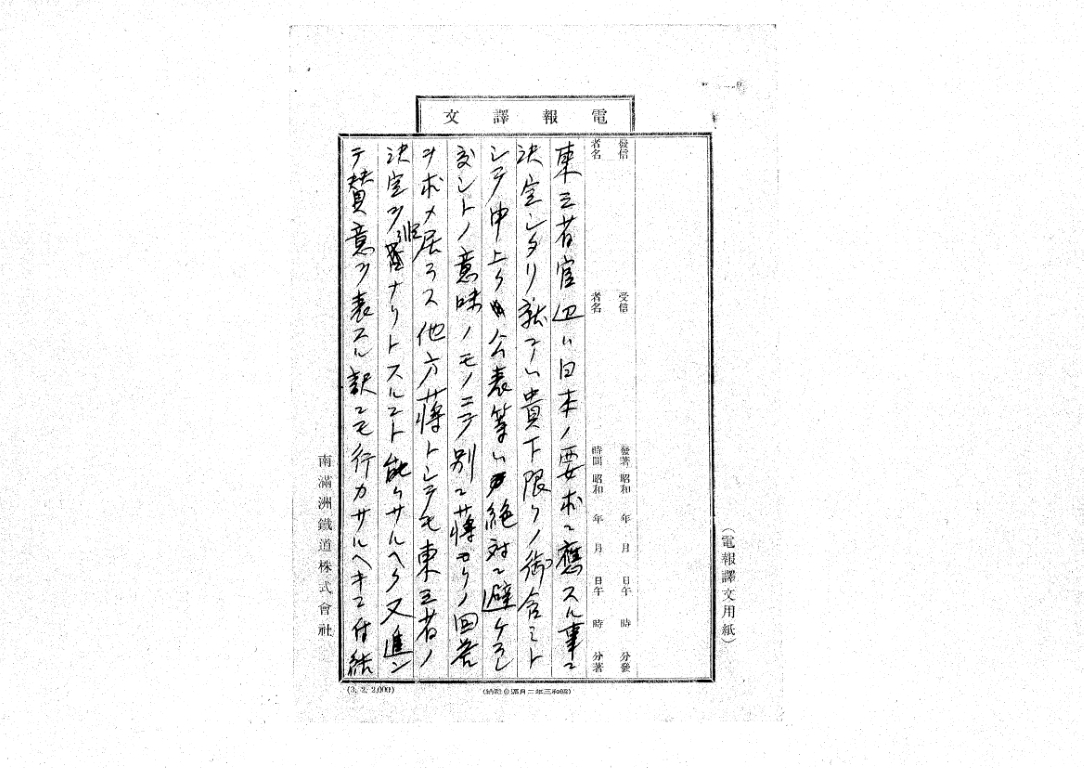 電報譯文
(電報譯文用紙)
發信者名 受信者名
發著時間 昭和 年 月 日午 時 分發
昭和 年 月 日午 時 分著
東三省官辺ハ日本ノ要求ニ應スル事ニ
決定シタリ就テハ貴下限リノ御含ミト
シテ申上ク公表等ハ絶対ニ避ケラレ
度シトノ意味ノモノニテ別ニ蒋ヨリノ回答
ヲ求メ居ラス他方蒋トシテモ東三省ノ
決定ヲナリトスルコト能ハサルヘク又進ン
テ賛意ヲ表スル訳ニモ行カサルヘキニ付結
南滿洲鐵道株式會社
(3. 2. 2,000)